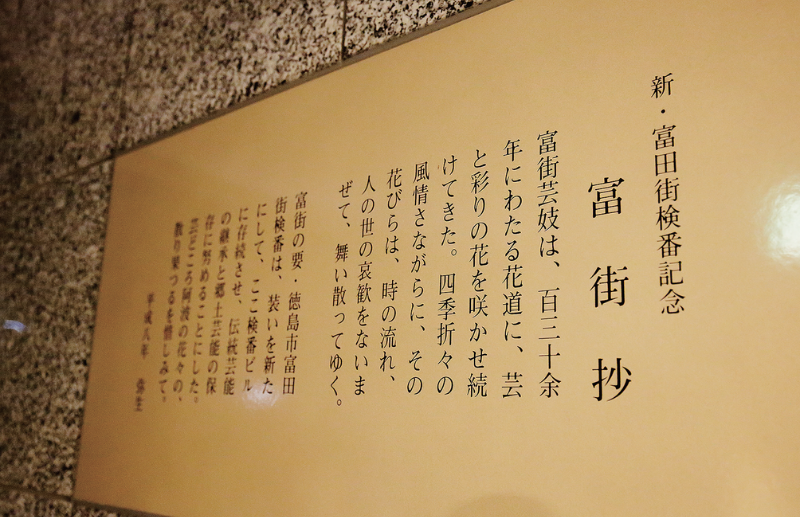 新・富田街検番記念
富街抄
富街芸妓は、百三十余
年にわたる花道に、芸
と彩りの花を咲かせ続
けてきた。四季折々の
風情さながらに、その
花びらは、時の流れ、
人の世の哀歓をないま
ぜて、舞い散ってゆく。
富街の要・徳島市富田
街検番は、装いを新た
にして、ここ検番ビル
に存続させ、伝統芸能
の継承と郷土芸能の保
存に努めることにした。
芸どころ阿波の花々の、
散り果つるを惜しみて。
平成八年 弥生